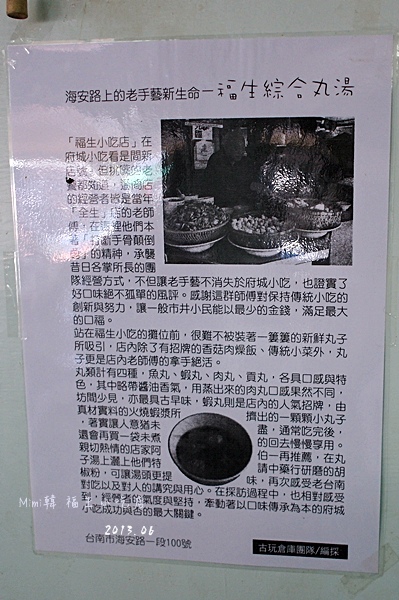 海安路上的老手藝新生命—福生綜合丸湯
「福生小吃店」在
府城小吃看是間新
店號，但抗
都知道，這間店
的經營者皆是當年
「全生」店的老師
傅，在這裡他們本
著「打斷手骨顛倒
勇」的精神，承襲
昔日名掌所長的團
隊經營方式，不但讓老手藝不消失於府城小吃，也證實了
好口味絕不孤單的風評。感謝這群師傅對保持傳統小吃的
創新與努力，讓一般市井小民能以最少的金錢，滿足最大
的口福。
站在福生小吃的攤位前，很難不被裝著一簍簍的新鮮丸子
所吸引，店內除了有招牌的香菇肉燥飯、傳統小菜外，丸
子更是店內老師傅的拿手絕活。
丸類計有四種，魚丸、蝦丸、肉丸、貢丸，各具口感與特
色，其中略帶醬油香氣，用蒸出來的肉丸口感果然不同，
坊間少見，亦最具古早味，蝦丸則是店內的人氣招牌，由
真材實料的火燒蝦漿所擠出的一顆顆小丸子
，著實讓人意猶未盡，通常吃完後，
還會再買一袋未煮的回去慢慢享用。
親切熱情的店家阿伯一再推薦，在丸
子湯上灑上他們特請中藥行研磨的胡
椒粉，可讓湯頭更提味，再次感受老台南
對吃以及對人的講究與用心。在探訪過程中，也相對感受
到，經營者的氣度與堅持，牽動著以口味傳承為本的府城
小吃成功與否的最大關鍵。
Mimi韓 福
2013.06
台南市海安路一段100號
古玩倉庫團隊/編採